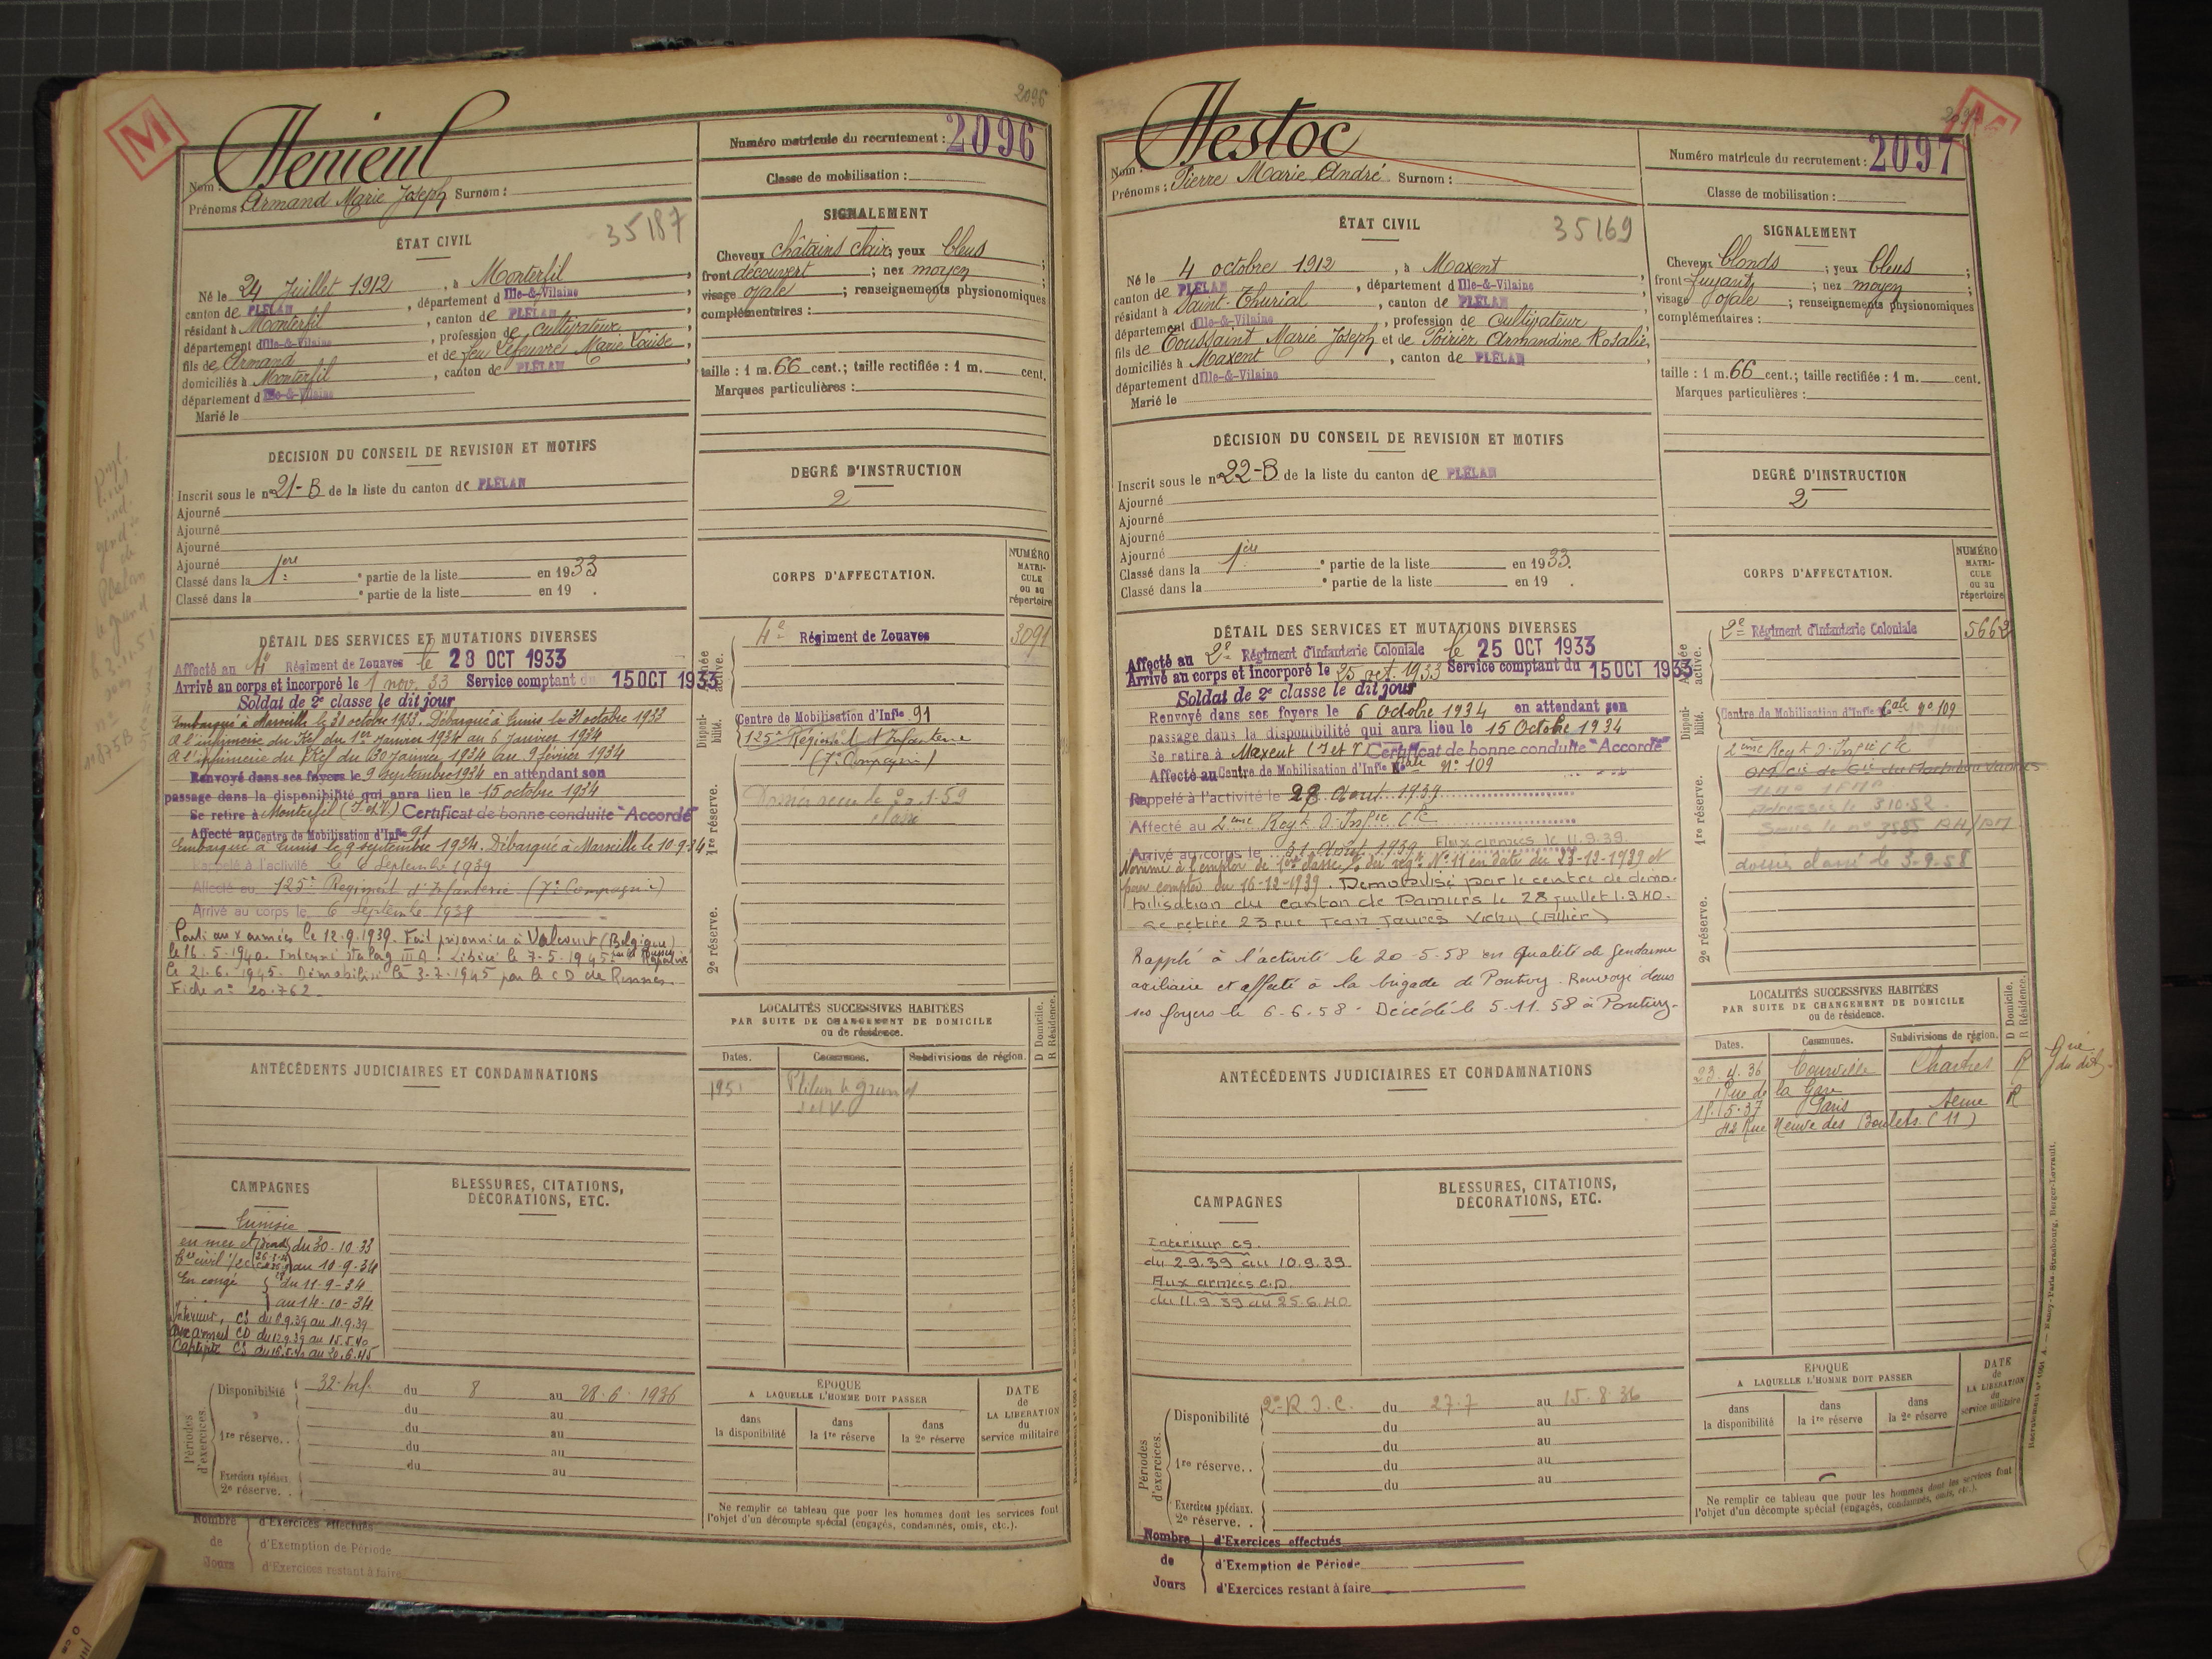 2096
M
Nom : Henieul
Prénoms : Armand Marie Joseph Surnom :
Numéro matricule du recrutement : 2096
Classe de mobilisation :
35187
ÉTAT CIVIL
Né le 24 Juillet 1912, à Monterfil
canton de PLÉLAN, département d Ille-&-Vilaine
résidant à Monterfil, canton de PLÉLAN
département d Ille-&-Vilaine, profession de Cultivateur
fils de Armand et de feu Lefeuvre Marie Louise,
domiciliés à Monterfil, canton de PLÉLAN
département d Ille-&-Vilaine
Marié le
SIGNALEMENT
Cheveux châtains clair; yeux bleus;
front découvert; nez moyen
visage ovale; renseignements physionomiques
complémentaires :
taille : 1 m. 66 cent.; taille rectifiée : 1 m. cent.
Marques particulières :
DÉCISION DU CONSEIL DE REVISION ET MOTIFS
Inscrit sous le nº 21-B de la liste du canton de PLÉLAN
Ajourné
Ajourné
Ajourné
Ajourné
Classé dans la 1ère partie de la liste en 1933
Classé dans la e partie de la liste en 19 .
DEGRÉ D'INSTRUCTION
2
DÉTAIL DES SERVICES ET MUTATIONS DIVERSES
Affecté au 4e Régiment de Zouaves le 28 OCT 1933
Arrivé au corps et incorporé le 1 nov. 33 Service comptant du 15 OCT 1933
Soldat de 2e classe le dit jour
Embarqué à Marseille le 30 octobre 1933. Débarqué à Tunis le 31 octobre 1933
A l'infirmerie du Kef du 1er Janvier 1934 au 6 Janvier 1934
A l'infirmerie du Kef du 30 Janvier 1934 au 9 février 1934
Renvoyé dans ses foyers le 9 septembre 1934 en attendant son
passage dans la disponibilité qui aura lieu le 15 octobre 1934
Se retire à Monterfil (I.et V.) Certificat de bonne conduite "Accordé"
Affecté au Centre de Mobilisation d'Infie 91
Embarqué à Tunis le 9 septembre 1934. Débarqué à Marseille le 10-9-34
Rappelé à l'activité le 6 Septembre 1939
Affecté au 125e Régiment d'Infanterie (7e Compagnie)
Arrivé au corps le 6 Septembre 1939
Parti aux armées le 12.9.1939. Fait prisonnier à Valcourt (Belgique)
le 16.5.1940. Interné Stalag III A. Libéré le 7-5-1945 par les Russes Rapatrié
le 21.6.1945. Démobilisé le 3.7.1945 par le CD de Rennes
Fiche nº 20.762
CORPS D'AFFECTATION.
NUMÉRO MATRICULE OU AU répertoire
Armée active.
4e Régiment de Zouaves 3091
Disponibilité.
Centre de Mobilisation d'Infie 91
125e Régiment d'Infanterie
(7e Compagnie)
1re réserve.
2e réserve.
LOCALITÉS SUCCESSIVES HABITÉES
PAR SUITE DE CHANGEMENT DE DOMICILE
ou de résidence.
Dates. Communes. Subdivisions de région. D Domicile. R Résidence.
1951 Plélan le Grand
I et V.
ANTÉCÉDENTS JUDICIAIRES ET CONDAMNATIONS
CAMPAGNES
Tunisie
en mer et du 30-10-33
au 10-9-34
En congé du 11-9-34
au 14-10-34
Intérieur, CS du 6.9.39 au 11.9.39
aux armées CD du 12.9.39 au 15.5.40
Captivité CS du 16.5.40 au 20.6.45
BLESSURES, CITATIONS,
DÉCORATIONS, ETC.
Périodes d'exercices.
Disponibilité 32e Inf. du 8 au 28-6-1936
du au
1re réserve. . du au
du au
du au
Exercices spéciaux.
2e réserve. .
ÉPOQUE
A LAQUELLE L'HOMME DOIT PASSER
dans la disponibilité dans la 1re réserve dans la 2e réserve
DATE de LA LIBÉRATION du service militaire
Ne remplir ce tableau que pour les hommes dont les services font
l'objet d'un décompte spécial (engagés, condamnés, omis, etc.).
Nombre de Jours
d'Exercices effectués
d'Exemption de Période
d'Exercices restant à faire
Nom : Hestoc
Prénoms : Pierre Marie André Surnom :
Numéro matricule du recrutement : 2097
Classe de mobilisation :
35169
ÉTAT CIVIL
Né le 4 octobre 1912, à Maxent
canton de PLÉLAN, département d Ille-&-Vilaine
résidant à Saint-Thurial, canton de PLÉLAN
département d Ille-&-Vilaine, profession de Cultivateur
fils de Toussaint Marie Joseph et de Poirier Armandine Rosalie,
domiciliés à Maxent, canton de PLÉLAN
département d Ille-&-Vilaine
Marié le
SIGNALEMENT
Cheveux blonds; yeux bleus;
front fuyant; nez moyen;
visage ovale; renseignements physionomiques
complémentaires :
taille : 1 m. 66 cent.; taille rectifiée : 1 m. cent.
Marques particulières :
DÉCISION DU CONSEIL DE REVISION ET MOTIFS
Inscrit sous le nº 22-B de la liste du canton de PLÉLAN
Ajourné
Ajourné
Ajourné
Ajourné
Classé dans la 1ère partie de la liste en 1933.
Classé dans la e partie de la liste en 19 .
DEGRÉ D'INSTRUCTION
2
DÉTAIL DES SERVICES ET MUTATIONS DIVERSES
Affecté au 2e Régiment d'Infanterie Coloniale le 25 OCT 1933
Arrivé au corps et incorporé le 25 oct. 1933 Service comptant du 15 OCT 1933
Soldat de 2e classe le dit jour
Renvoyé dans ses foyers le 6 Octobre 1934 en attendant son
passage dans la disponibilité qui aura lieu le 15 Octobre 1934
Se retire à Maxent (I et V) Certificat de bonne conduite "Accordé"
Affecté au Centre de Mobilisation d'Infie Cale Nº 109
Rappelé à l'activité le 28 Août 1939
Affecté au 2ème Regt d'Infie Cle
Arrivé au corps le 31 Août 1939 Aux armées le 11.9.39.
Nommé à l'emploi de 1ère classe, du regt Nº 11 en date du 23-12-1939 et
pour compter du 16-12-1939. Démobilisé par le centre de démo-
bilisation du canton de Pamiers le 28 juillet 1940.
se retire 23 rue Jean Jaurès Vichy (Allier)
Rappelé à l'activité le 20-5-58 en qualité de gendarme
auxiliaire et affecté à la brigade de Pontivy. Renvoyé dans
ses foyers le 6-6-58. Décédé le 5.11.58 à Pontivy.
CORPS D'AFFECTATION.
NUMÉRO MATRICULE OU AU répertoire
Armée active.
2e Régiment d'Infanterie Coloniale 5662
Disponibilité.
Centre de Mobilisation d'Infie Cale nº 109
2ème Regt d'Infie Cle
1re réserve.
Adressé le 3.10.52.
sous le nº 3585
dossier classé le 3-9-58
2e réserve.
LOCALITÉS SUCCESSIVES HABITÉES
PAR SUITE DE CHANGEMENT DE DOMICILE
ou de résidence.
Dates. Communes. Subdivisions de région. D Domicile. R Résidence.
23.4.36 Courville Chartres R
Rue de la Gare
11.5.37 Paris Seine R
42 Rue Neuve des Boulets (11)
ANTÉCÉDENTS JUDICIAIRES ET CONDAMNATIONS
CAMPAGNES
Intérieur CS.
du 2.9.39 au 10.9.39
Aux armées C.D.
du 11.9.39 au 25.6.40
BLESSURES, CITATIONS,
DÉCORATIONS, ETC.
Périodes d'exercices.
Disponibilité 2e R.I.C. du 27.7 au 15.8.36
du au
du au
1re réserve. . du au
du au
Exercices spéciaux.
2e réserve. .
ÉPOQUE
A LAQUELLE L'HOMME DOIT PASSER
dans la disponibilité dans la 1re réserve dans la 2e réserve
DATE de LA LIBÉRATION du service militaire
Ne remplir ce tableau que pour les hommes dont les services font
l'objet d'un décompte spécial (engagés, condamnés, omis, etc.).
Nombre de Jours
d'Exercices effectués
d'Exemption de Période
d'Exercices restant à faire